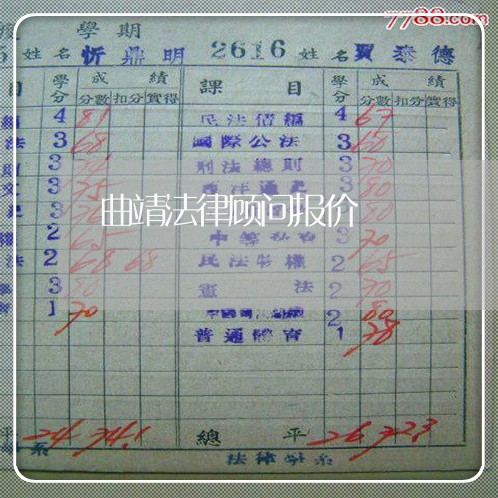 7788.com
學期
姓名 忻鼎明 2616 姓名 賈泰德
目 學分 成績 分數 扣分 實得 課目 學分 成績 分數 扣分 實得
4 81 民法債編 4 67
法 3 68 國際公法 3 60
3 刑法總則 3 70
3 75 西洋通史 3 80
曲靖法律顾问报价
3 80
2 65 3 70
法 2 68 68 民法物權 2 65
3 80 憲法 2 70
1 70 2 80
普通體育 1 78
平 24 74.1 總平 26 72.3
系 法律學系